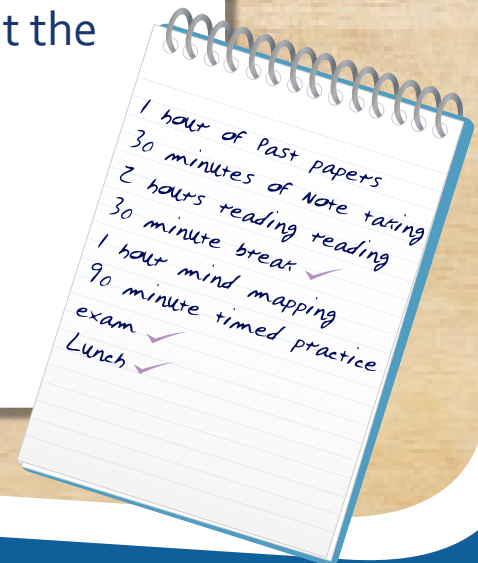 t the
1 hour of Past papers
30 minutes of Note taking
2 hours reading reading
30 minute break
1 hour mind mapping
90 minute timed practice
exam
Lunch